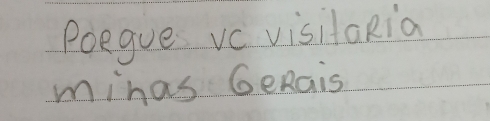 Porque vc visitaria
minas Gerais